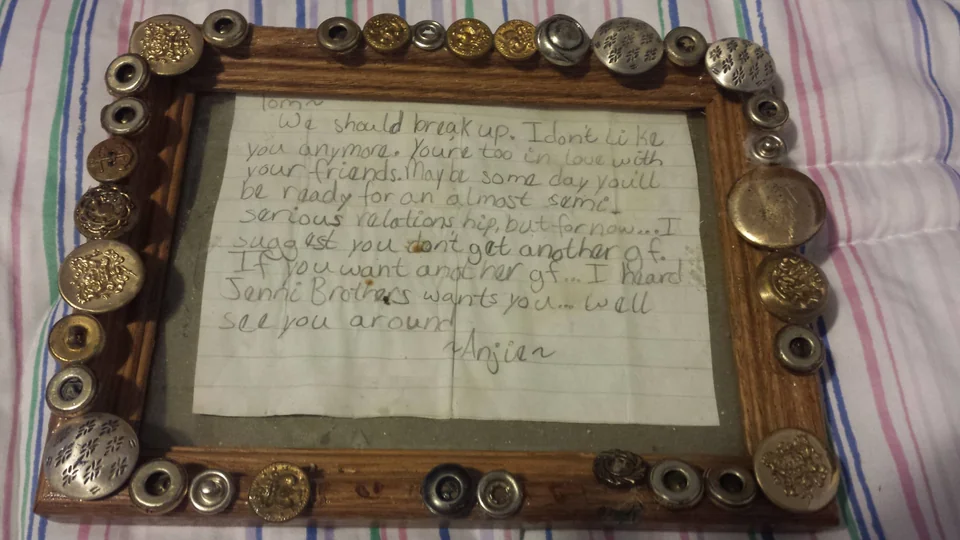 Tom~
We should break up. I don't like
you anymore. You're too in love with
your friends. Maybe some day you'll
be ready for an almost semi-
serious relationship, but for now... I
suggest you don't get another gf.
If you want another gf... I heard
Jenni Brothers wants you... well
see you around
~Anjie~